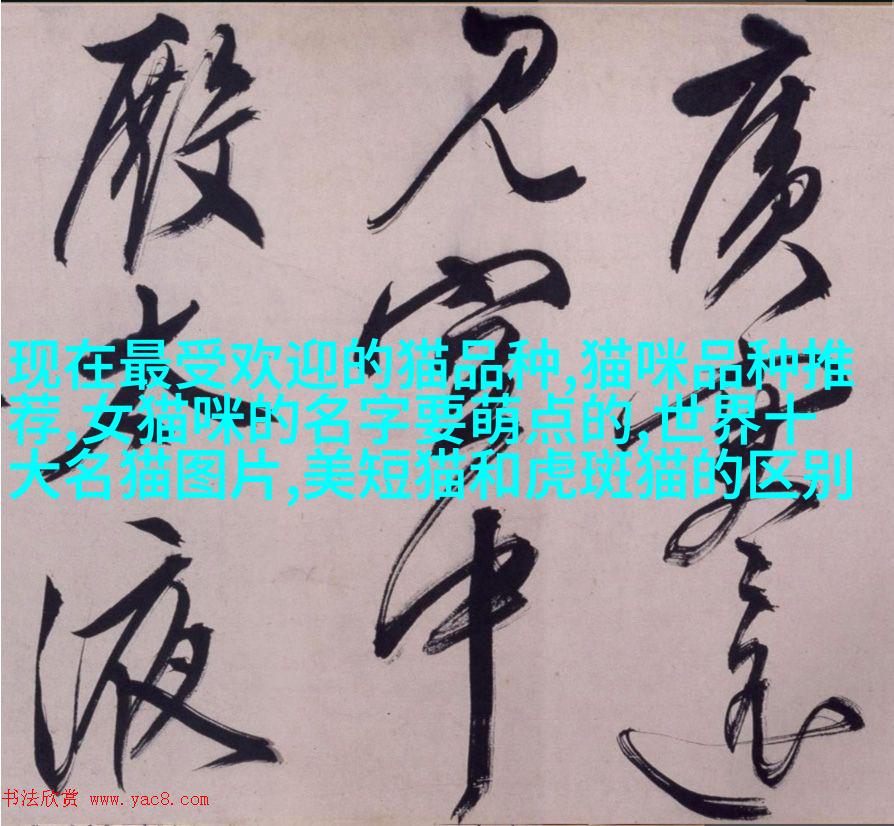 廣
見 中
殿太液
现在最受欢迎的猫品种,猫咪品种推
荐,女猫咪的名字要萌点的,世界十
大名猫图片,美短猫和虎斑猫的区别
书法欣赏 www.yac8.com